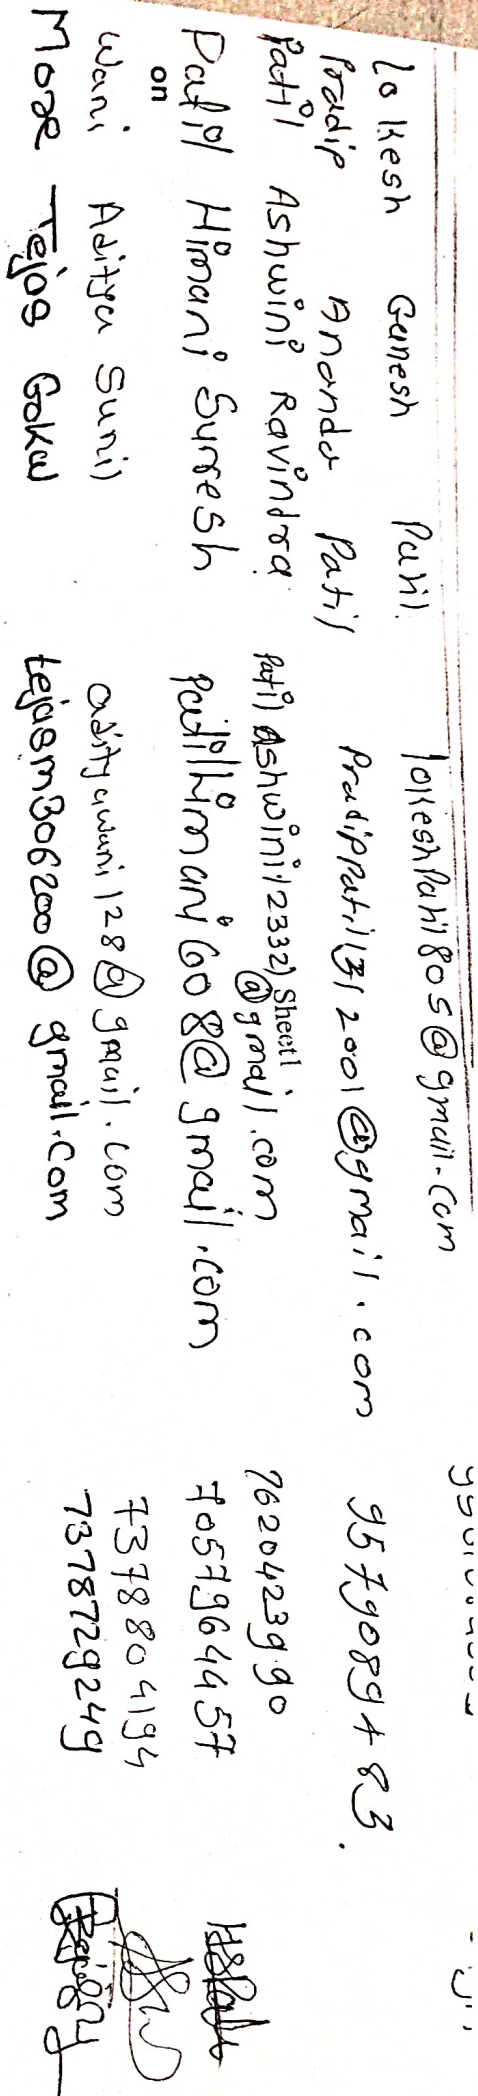 Lokesh Ganesh Patil. lokeshpatil805@gmail.com
Pradip Ananda Patil Pradippatil1312001@gmail.com 9579089783.
Patil Ashwini Ravindra Patil Ashwini12332) @gmail.com 7620423990
Sheetl
Patil Himani Suresh patilhimani608@gmail.com 7057964457
on
Wani Aditya Sunil adityawani128@gmail.com 7378804194
More Tejas Gokul tejasm306200@gmail.com 7378729249